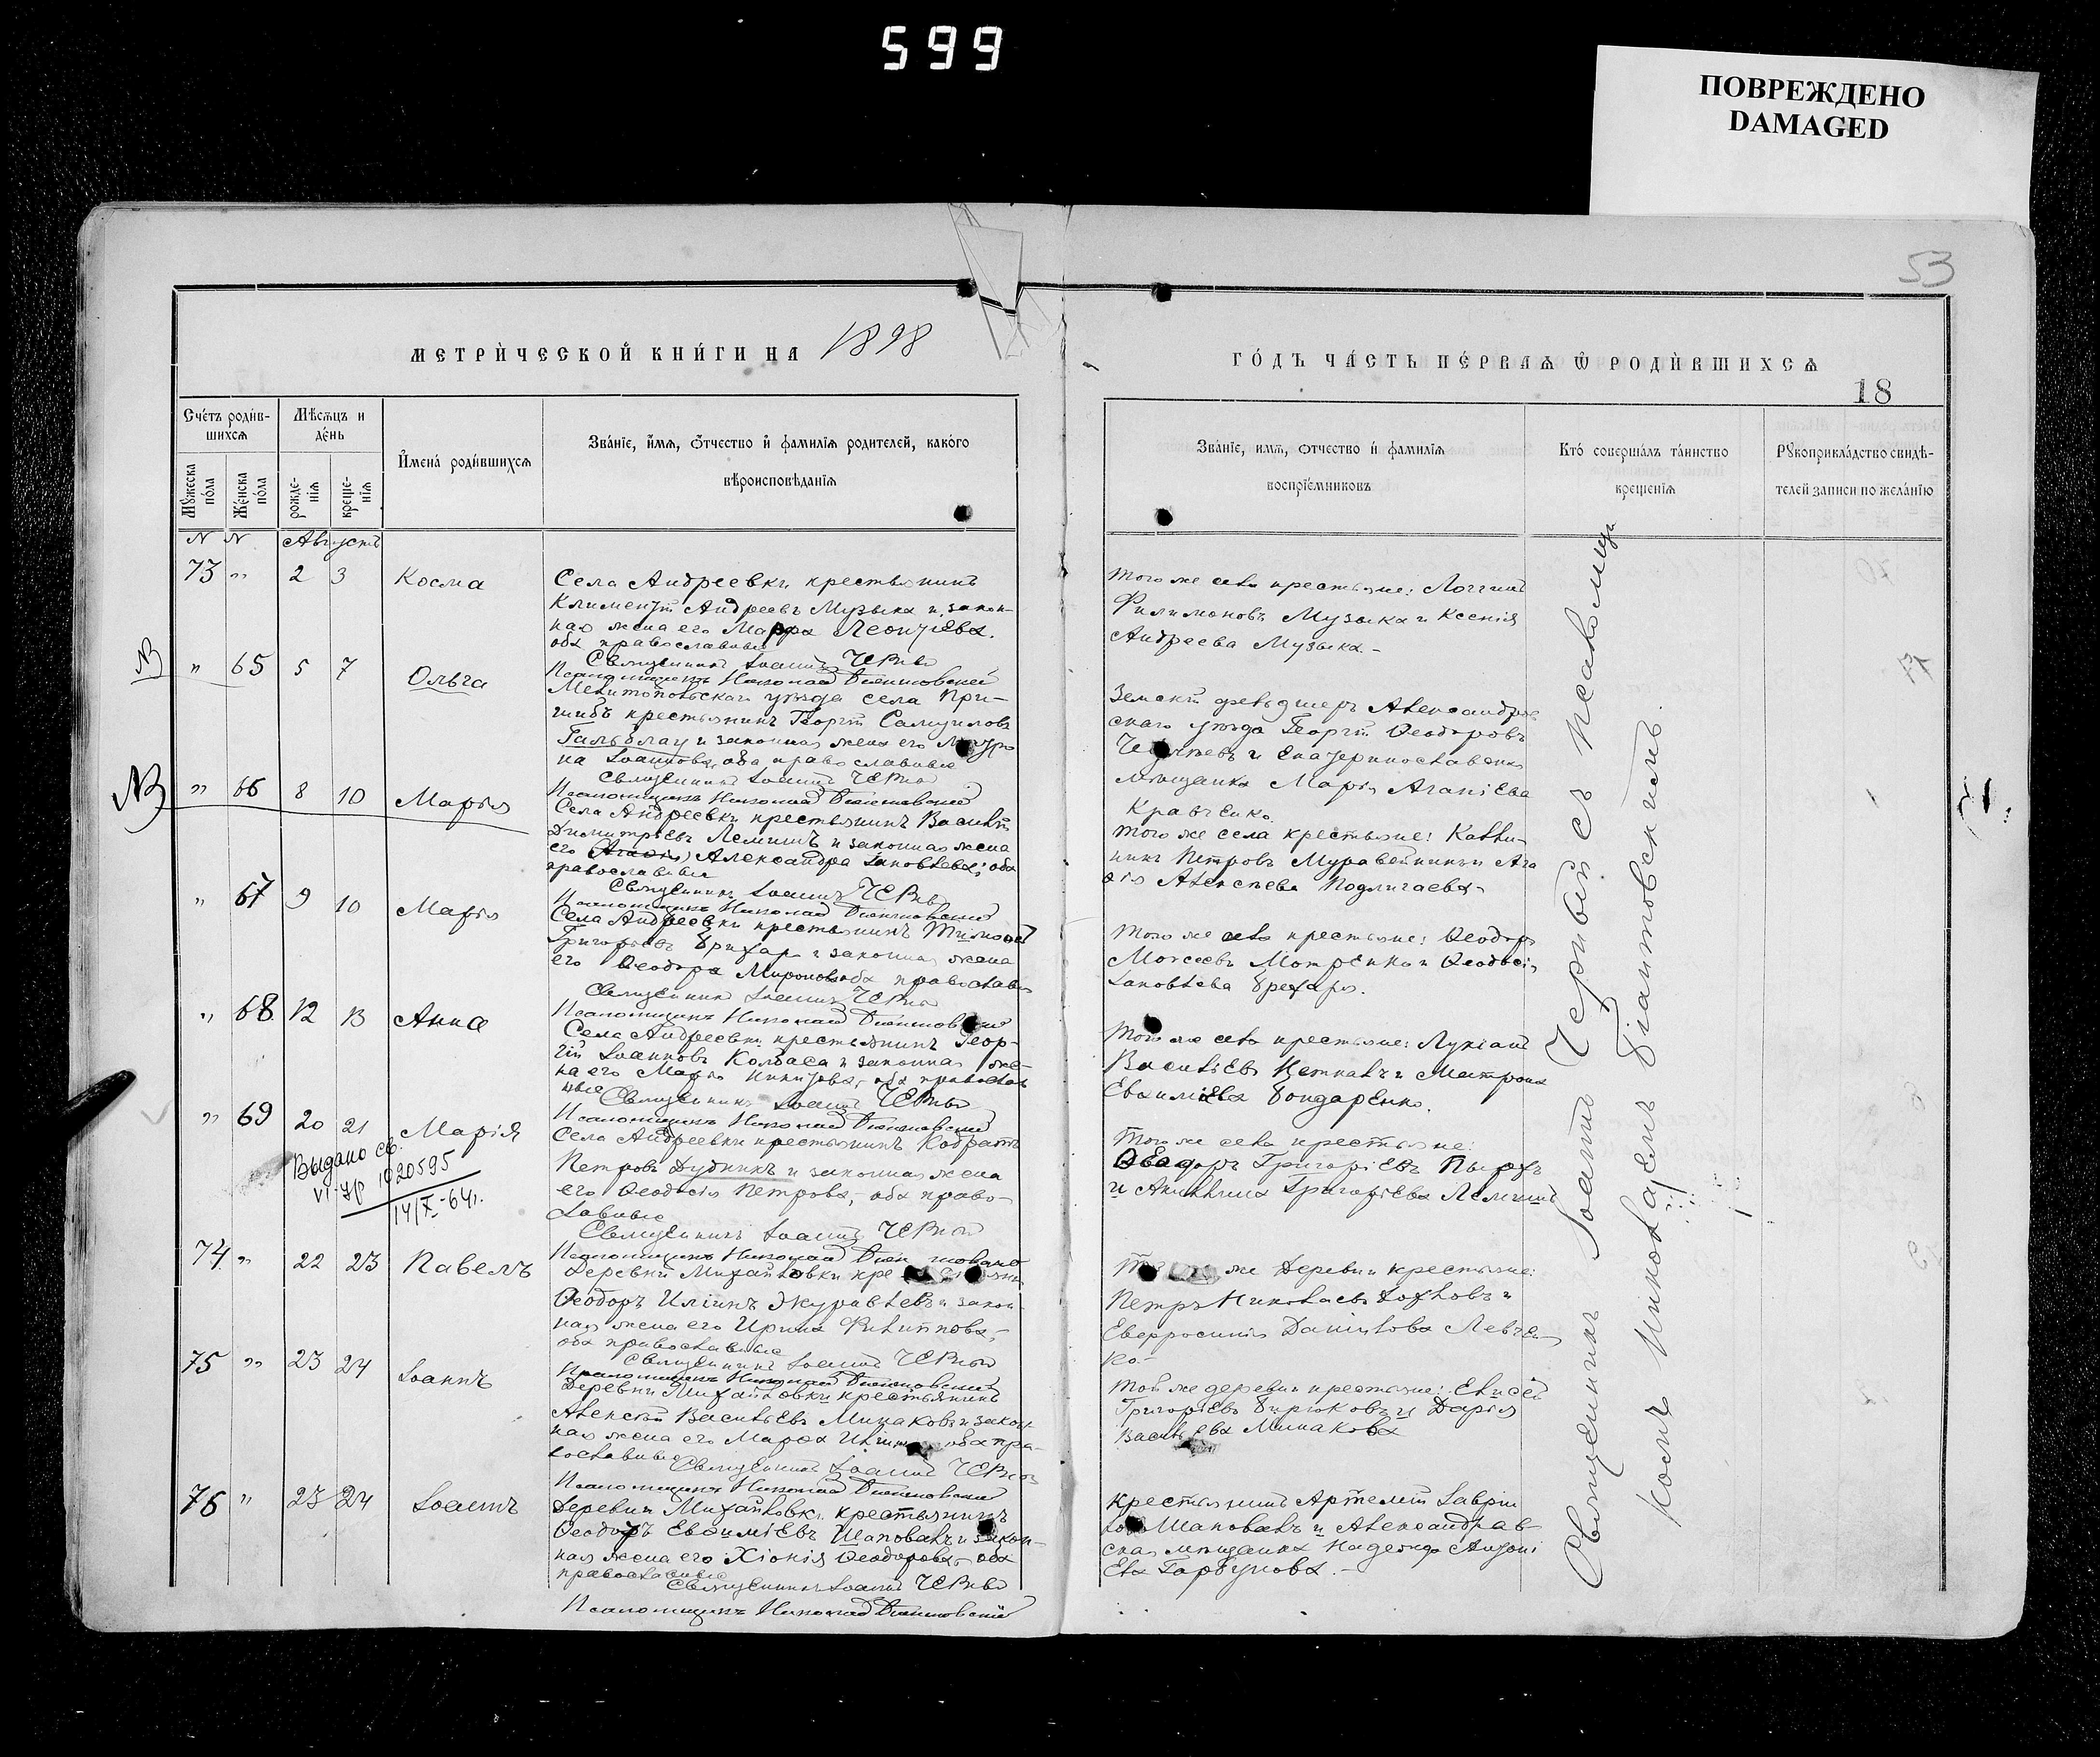 599
ПОВРЕЖДЕНО
DAMAGED
53
МЕТРИЧЕСКОЙ КНИГИ НА 1898
ГОДЪ ЧАСТЬ ПЕРВАЯ Ѿ РОДИВШИХСЯ
18
Счетъ родив-
шихся
Мѣсяцъ и
день
Мужеска
пола
Женска
пола
рожде-
нія
креще-
нія
Имена родившихся
Званіе, имя, отчество и фамилія родителей, какого
вѣроисповѣданія
Званіе, имя, отчество и фамилія
воспріемниковъ
Кто совершалъ таинство
крещенія
Рукоприкладство свидѣ-
телей записи по желанію
N N Августъ
73 " 2 3 Косма
Села Андреевки крестьянинъ
Климентій Андреевъ Музыка и закон-
ная жена его Марѳа Леонтіева.
оба православные
Священникъ Іоаннъ Черный
Псаломщикъ Николай
Того же села крестьяне: Логгинъ
Филимоновъ Музыка и Ксенія
Андреева Музыка.-
NB " 65 5 7 Ольга
Мелитопольскаго уѣзда села При-
шибъ крестьянинъ Георгій Самуиловъ
и законная жена его
на Іоаннова, оба православные
Священникъ Іоаннъ Черный
Псаломщикъ Николай
Земскій фельдшеръ Александров-
скаго уѣзда Георгій Ѳеодоровъ
и Екатеринославская
мѣщанка Марія Агапіева
Кравченко.
NB " 66 8 10 Марія
Села Андреевки крестьянинъ Василій
Димитріевъ Лемишъ и законная жена
его Александра Іаковлева; оба
православные
Священникъ Іоаннъ Черный
Псаломщикъ Николай
Того же села крестьяне: Калли-
никъ Петровъ Муравейникъ и Ага
ѳія Алексѣева
" 67 9 10 Марія
Села Андреевки крестьянинъ Тимоѳей
Григорьевъ и законная жена
его Ѳеодора Миронова оба православн
Священникъ Іоаннъ Черный
Псаломщикъ Николай
Того же села крестьяне: Ѳеодоръ
Моисеевъ и Ѳеодосія
Іаковлева
" 68 12 13 Анна
Села Андреевки крестьянинъ Геор-
гій Іоанновъ Колбаса и законная же-
на его Марія Никитова, оба православ
ные
Священникъ Іоаннъ Черный
Псаломщикъ Николай
Того же села крестьяне: Лукіанъ
Васильевъ и Матрона
Евѳиміева Бондаренко.
" 69 20 21 Марія
Выдано св.
VI-УР 1020595
14/X-64г.
Села Андреевки крестьянинъ Кодратъ
Петровъ Дудникъ и законная жена
его Ѳеодосія Петрова, оба право-
славные
Священникъ Іоаннъ Черный
Псаломщикъ Николай
Того же села крестьяне:
Григоріевъ
и Акилина Григоріева Лемишъ
74 " 22 23 Павелъ
Деревни Михайловки
Ѳеодоръ Иліинъ Журавлевъ и закон-
ная жена его Ирина Филиппова,-
оба православные
Священникъ Іоаннъ Черный
Псаломщикъ Николай
же деревни крестьяне:
Петръ Николаевъ и
Евфросинія Даніилова Левчен
ко.-
75 " 23 24 Іоаннъ
Деревни Михайловки крестьянинъ
Алексѣй Васильевъ Минаковъ и закон
ная жена его Марѳа оба пра-
вославные
Священникъ Іоаннъ Черный
Псаломщикъ Николай
Той же деревни крестьяне: Елисей
Григоріевъ Бирюковъ и Дарія
Васильева Минакова
76 " 23 24 Іоаннъ
Деревни Михайловки крестьянинъ
Ѳеодоръ Евѳиміевъ Шаповалъ и закон-
ная жена его Хіонія Ѳеодорова,- оба
православные
Священникъ Іоаннъ Черный
Псаломщикъ Николай
крестьянинъ Артемій Гаврі
Шаповалъ и Александров-
ская мѣщанка Надежда Антоні
ева Горбунова.-
Священникъ Іоаннъ Черный съ псаломщи-
комъ Николаемъ